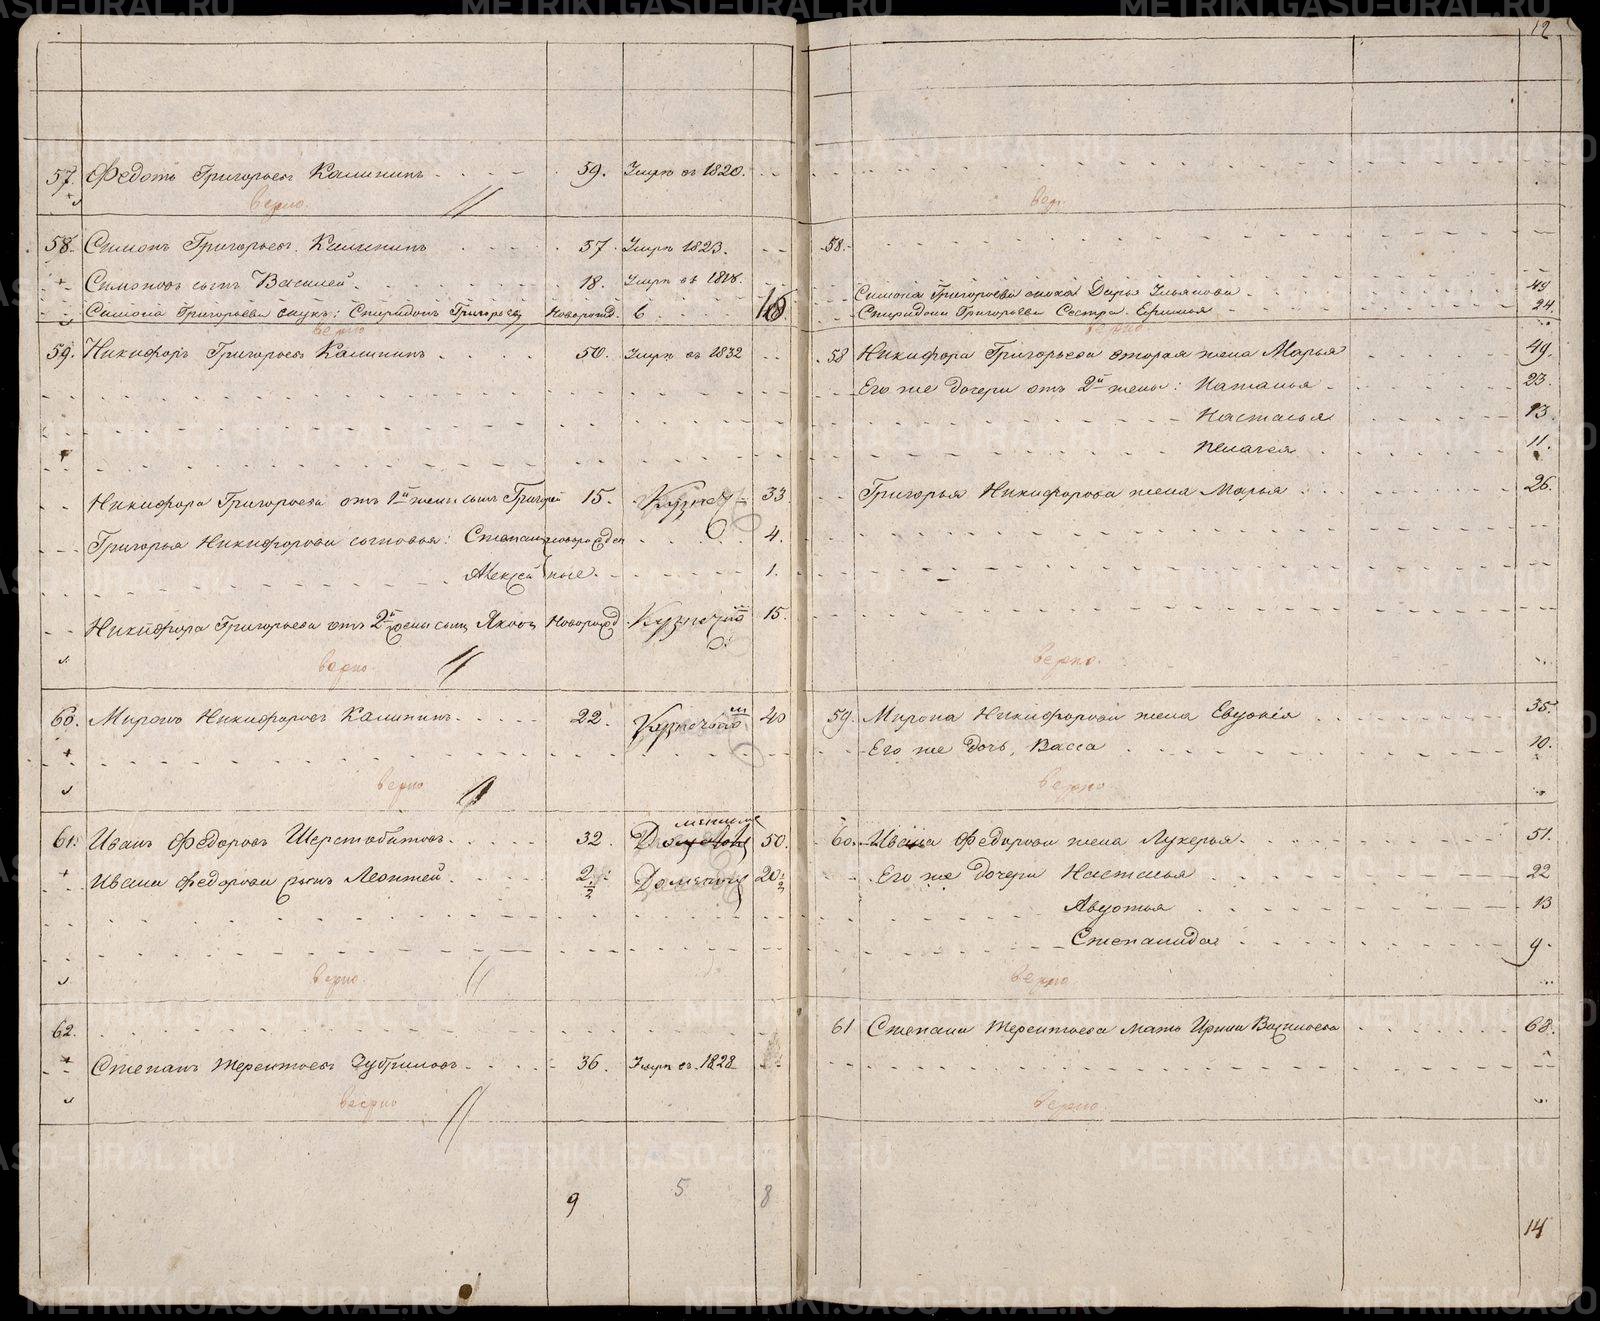 12
57. Федотъ Григорьевъ Калининъ 59. Умре въ 1820.
верно.
58. Симонъ Григорьевъ Калининъ 57. Умре 1823.
Симоновъ сынъ Василей 18. Умре въ 1818.
Симона Григорьева внукъ: Спиридонъ Григорьевъ Новорожд. 6 16
верно
59. Никифоръ Григорьевъ Калининъ 50. Умре въ 1832
Никифора Григорьева отъ 1й жены сынъ Григорей 15. 33.
Григорья Никифорова сыновья: Степанъ новорожден 4.
Алексей ные. 1.
Никифора Григорьева отъ 2й жены сынъ Яковъ Новорожд 15.
верно
60. Миронъ Никифоровъ Калининъ. 22. 40
верно
61. Иванъ Федоровъ Шерстобитовъ. 32. 50.
Ивана Федорова сынъ Леонтей. 2 1/2 20 1/2
верно.
62.
Степанъ Терентьевъ Чубриловъ. 36. Умре въ 1828
верно
9 5 8
вер.
58.
Симона Григорьева сноха Дарья Ульянова 49
Спиридона Григорьева Сестра Ефимья 24.
верно
58 Никифора Григорьева вторая жена Марья 49.
Его же дочери отъ 2й жены: Наталья 23.
Настасья 13.
Пелагея 11.
Григорья Никифорова жена Марья 26.
верно.
59. Мирона Никифорова жена Евдокія 35.
Его же дочь, Васса 10.
верно
60. Ивана Федорова жена Лукерья. 51.
Его же дочери Настасья 22
Авдотья 13
Степанида 9.
верно
61 Степана Терентьева мать Ирина Васильева 68.
верно
14
METRIKI.GASO-URAL.RU